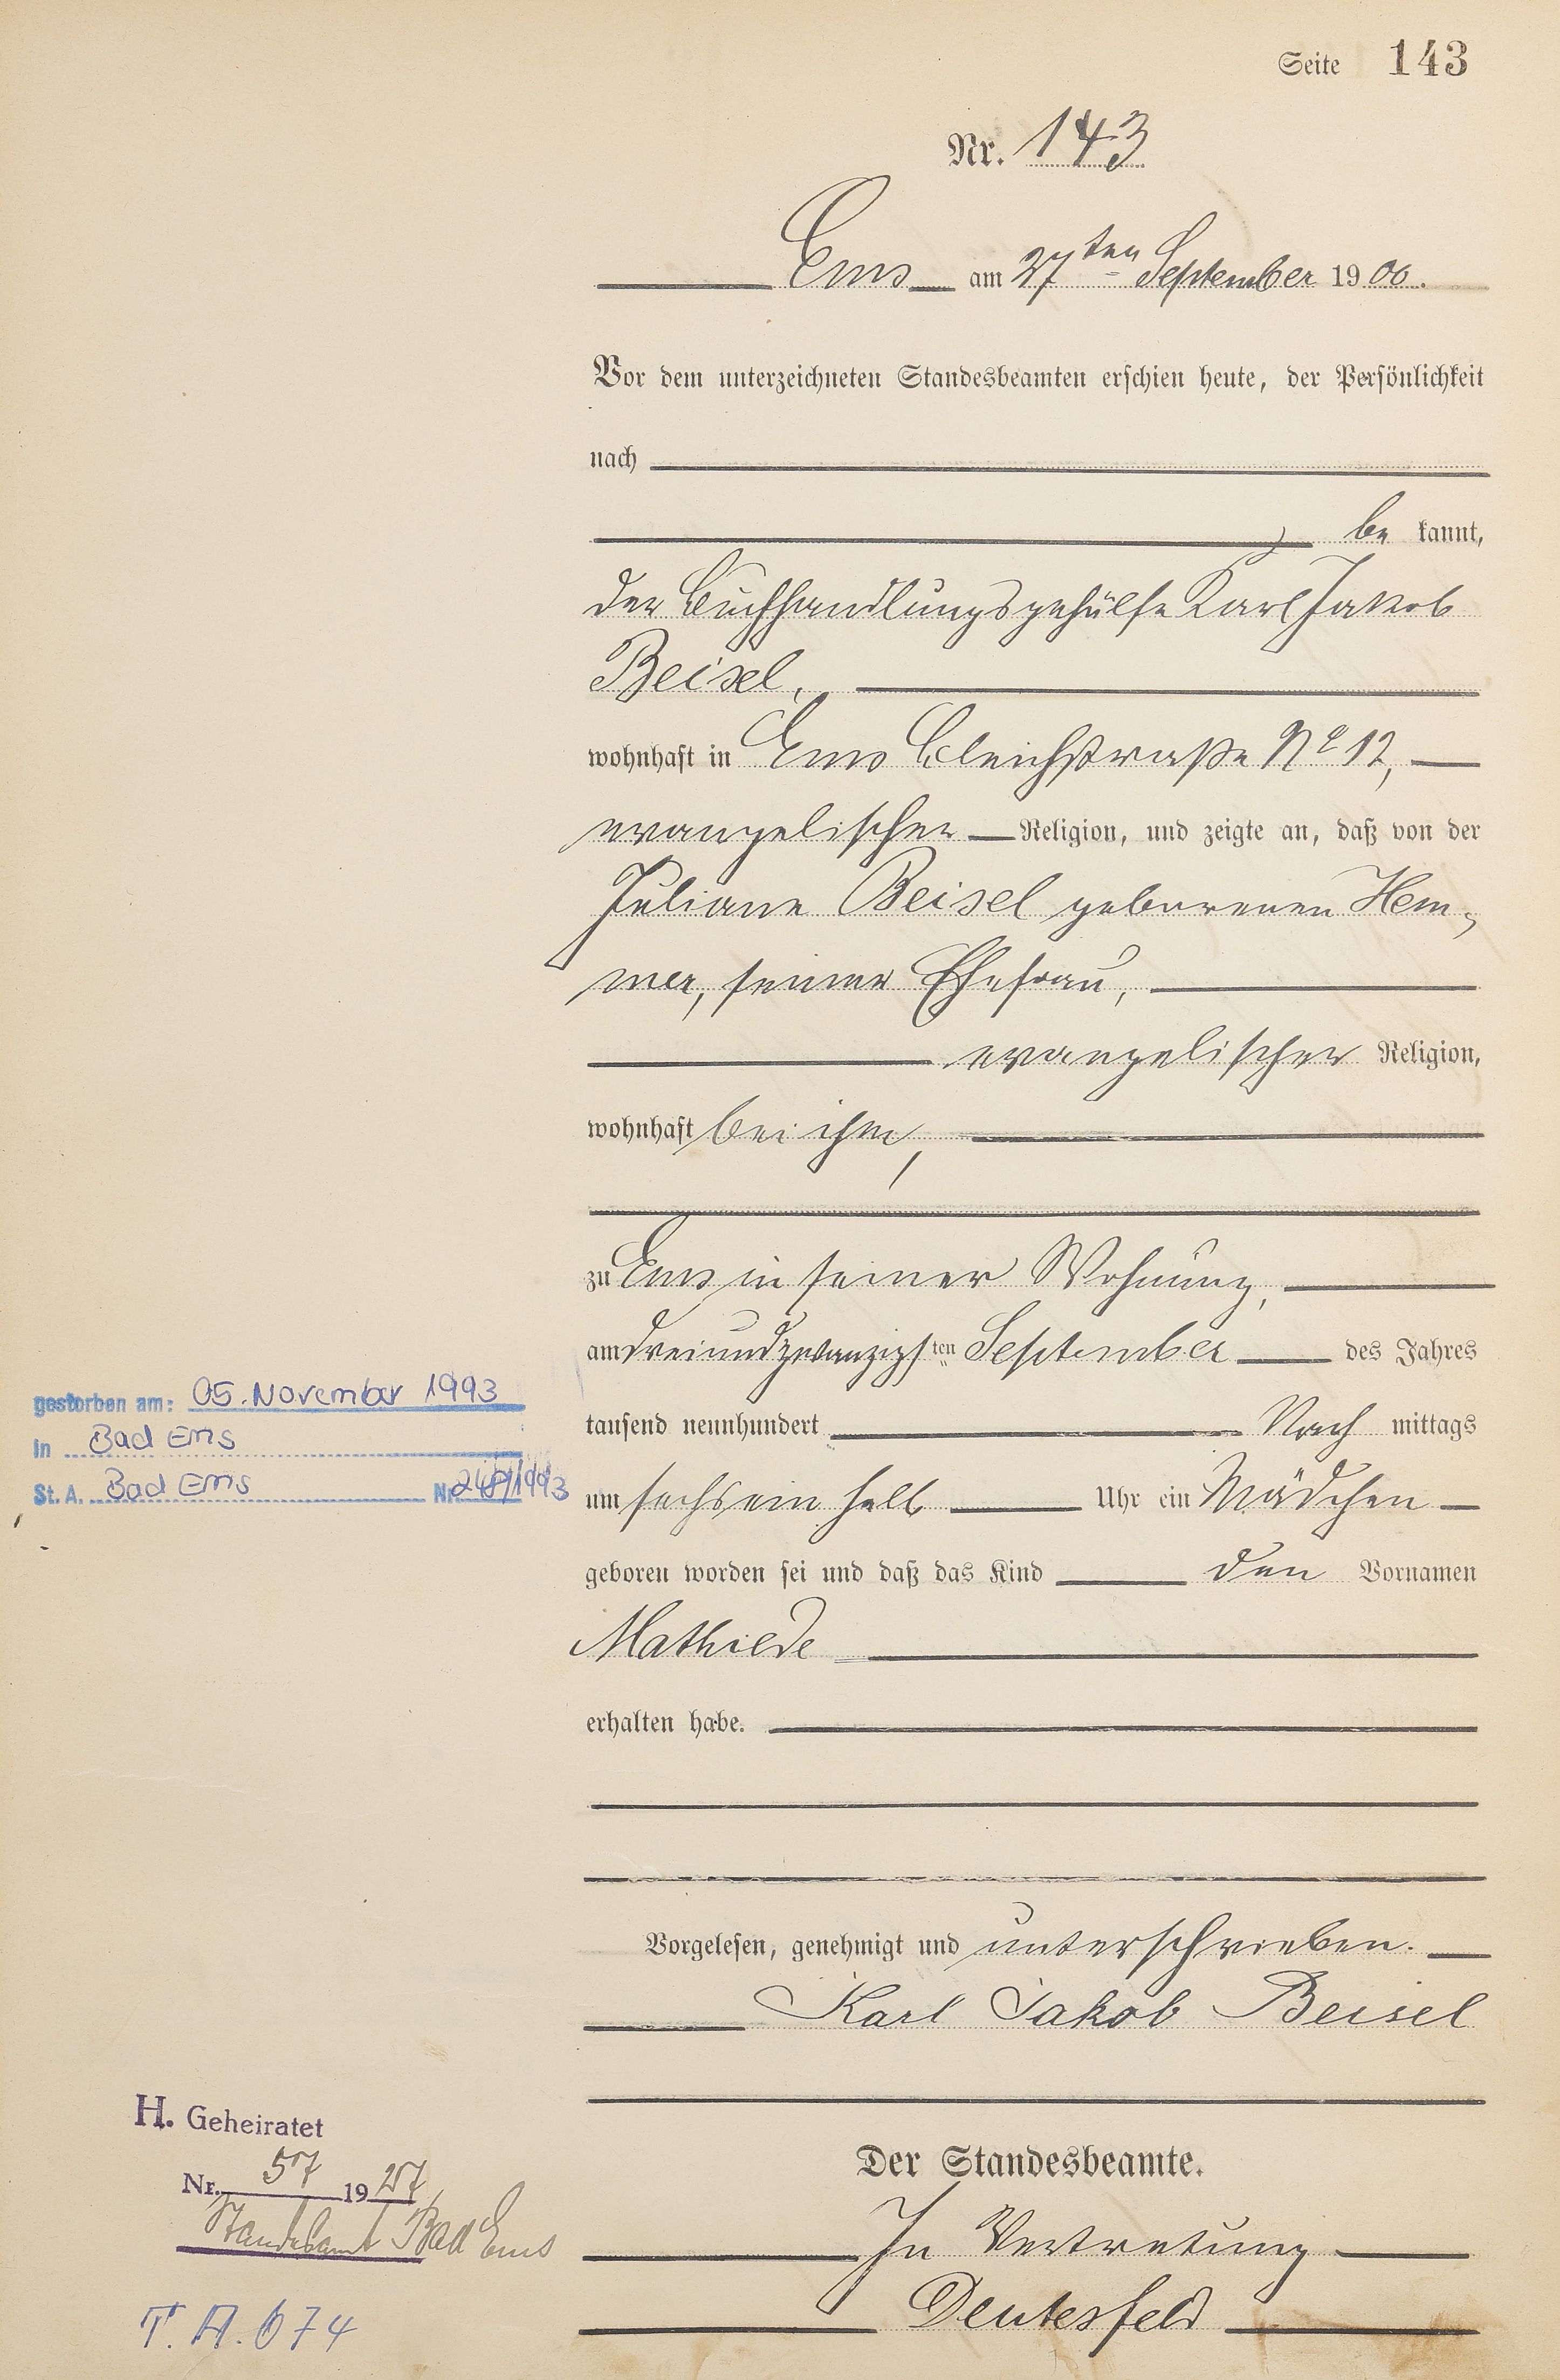 Seite 143
Nr. 143
Ems am 27ten September 1900.
Vor dem unterzeichneten Standesbeamten erschien heute, der Persönlichkeit
nach
be kannt,
der Buchhandlungsgehülfe Karl Jakob
Beisel,
wohnhaft in Ems Bleichstraße No 12,
evangelischer Religion, und zeigte an, daß von der
Juliane Beisel geborenen Hem-
mer, seiner Ehefrau,
evangelischer Religion,
wohnhaft bei ihm,
zu Ems in seiner Wohnung,
am dreiundzwanzigsten September des Jahres
tausend neunhundert Nach mittags
um sechs ein halb Uhr ein Mädchen
geboren worden sei und daß das Kind den Vornamen
Mathilde
erhalten habe.
Vorgelesen, genehmigt und unterschrieben.
Karl Jakob Beisel
Der Standesbeamte.
In Vertretung
Deutesfeld
gestorben am: 05. November 1993
in Bad Ems
St. A. Bad Ems Nr. 248/1993
H. Geheiratet
Nr. 57 1927
Standesamt Bad Ems
T. A. 674